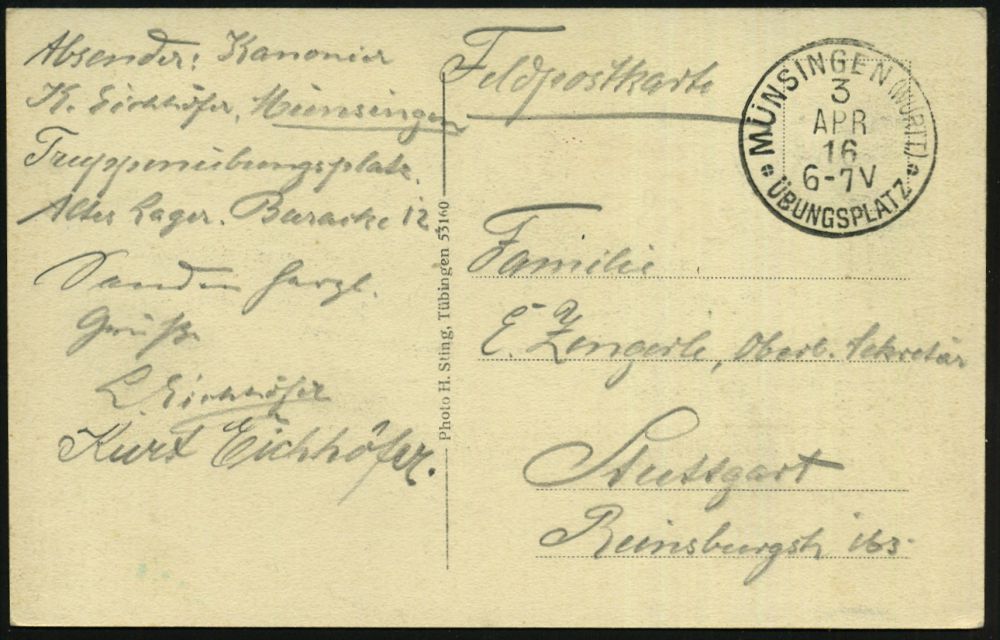 Absender: Kanonier
K. Eichhöfer, Münsingen
Truppenübungsplatz.
Altes Lager. Baracke 12.
Senden herzl.
Grüße
L. Eichhöfer
Kurt Eichhöfer.
Photo H. Sting, Tübingen 53160
Feldpostkarte
MÜNSINGEN (WÜRTT.)
3
APR
16
6-7V
ÜBUNGSPLATZ
Familie
E. Zengerle, Oberl. Sekretär
Stuttgart
Reinsburgstr 163.